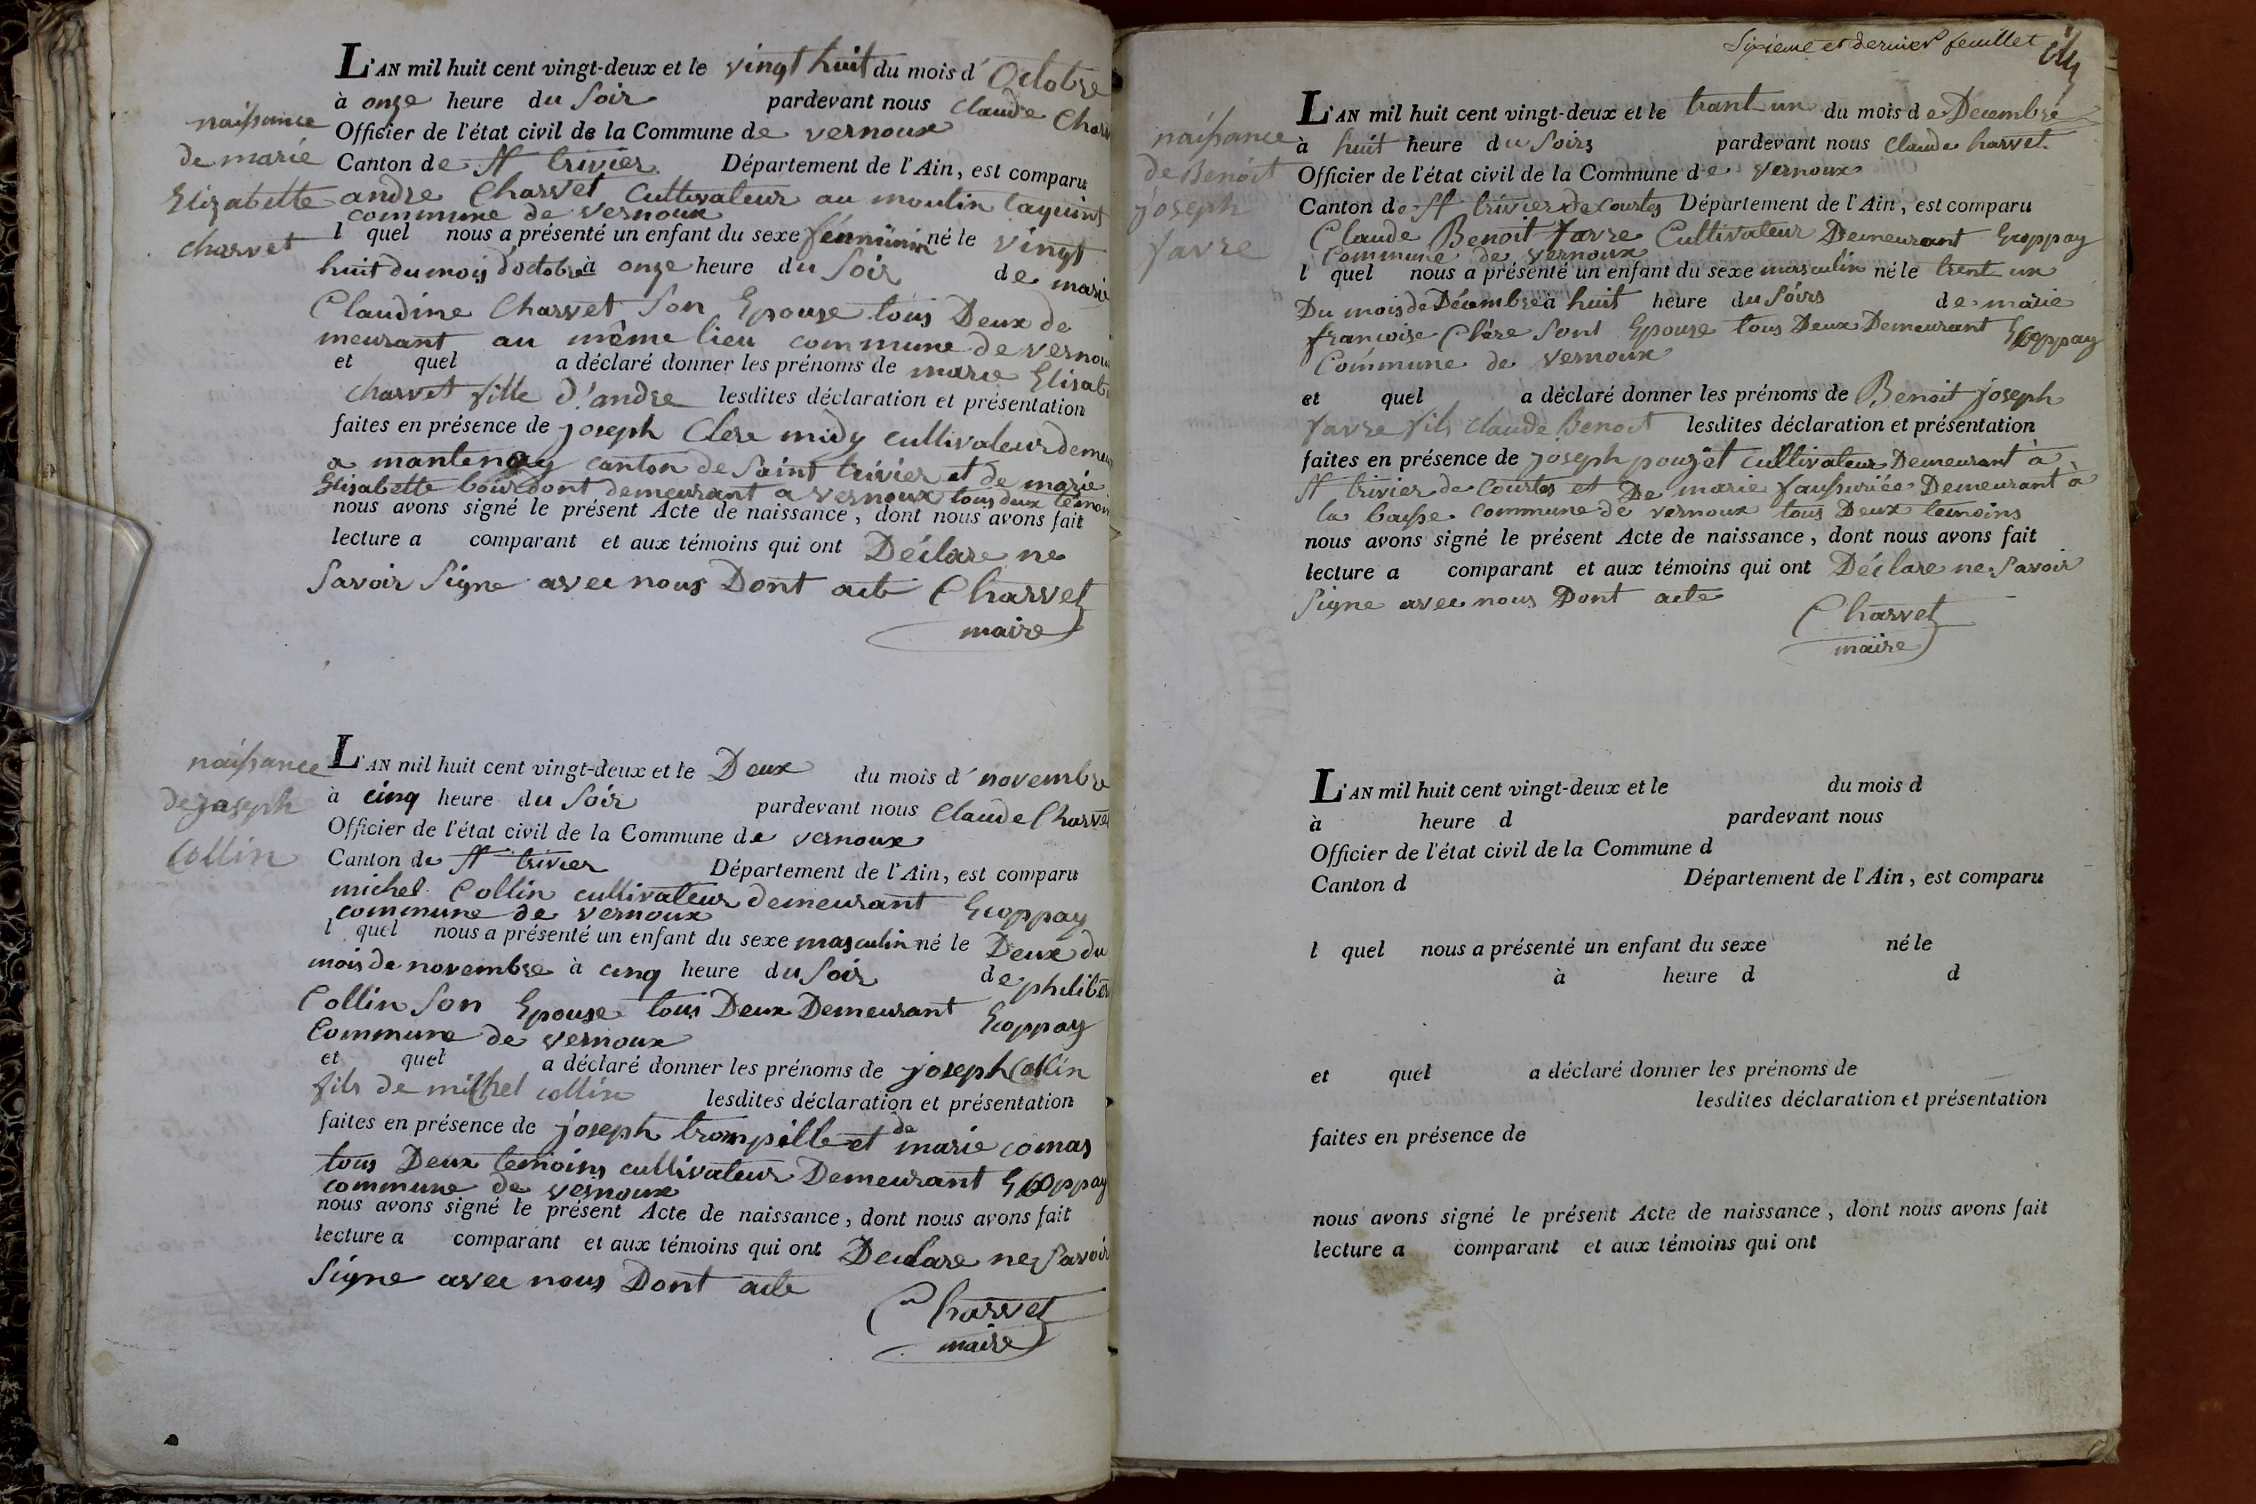 naissance
de marie
Elizabette
charvet
L'AN mil huit cent vingt-deux et le vingt huit du mois d'Octobre
à onze heure du Soir pardevant nous Claude Char
Officier de l'état civil de la Commune de vernoux
Canton de St trivier Département de l'Ain, est comparu
andre Charvet Cultivateur au moulin
commune de vernoux
l quel nous a présenté un enfant du sexe féminin né le vingt
huit du mois d'octobre à onze heure du Soir de marie
Claudine Charvet Son Epouse tous Deux de
meurant au même lieu commune de vernoux
et quel a déclaré donner les prénoms de marie Elisab
charvet fille d'andre lesdites déclaration et présentation
faites en présence de joseph Clere midy cultivateur demeu
a mantenay canton de Saint trivier et de marie
Elisabette bourdont demeurant a vernoux tous deux témoin
nous avons signé le présent Acte de naissance, dont nous avons fait
lecture a comparant et aux témoins qui ont Déclare ne
Savoir Signe avec nous Dont acte Charvet
maire
naissance
de Joseph
Collin
L'AN mil huit cent vingt-deux et le Deux du mois d'novembre
à cinq heure du Soir pardevant nous Claude Charvet
Officier de l'état civil de la Commune de vernoux
Canton de St trivier Département de l'Ain, est comparu
michel Collin cultivateur demeurant Ecoppay
commune de vernoux
l quel nous a présenté un enfant du sexe masculin né le Deux du
mois de novembre à cinq heure du Soir de philiber
Collin Son Epouse tous Deux Demeurant Ecoppay
Commune de vernoux
et quel a déclaré donner les prénoms de joseph Collin
fils de michel collin lesdites déclaration et présentation
faites en présence de joseph trompille et de marie comas
tous Deux temoins cultivateur Demeurant Ecoppay
commune de vernoux
nous avons signé le présent Acte de naissance, dont nous avons fait
lecture a comparant et aux témoins qui ont Declare ne Savoir
Signe avec nous Dont acte
Charvet
maire
Sixieme et dernier feuillet
naissance
de Benoit
joseph
favre
L'AN mil huit cent vingt-deux et le trant un du mois de Decembre
à huit heure du Soirs pardevant nous Claude harvet
Officier de l'état civil de la Commune de vernoux
Canton de St trivier de Courtes Département de l'Ain, est comparu
Claude Benoit favre Cultivateur Demeurant Ecoppay
Commune de vernoux
l quel nous a présenté un enfant du sexe masculin né le trent un
Du mois de Décembre à huit heure du Sóirs de marie
francoise Clére Sont Epouse tous Deux Demeurant Ecoppay
Commune de vernoux
et quel a déclaré donner les prénoms de Benoit joseph
favre fils claude Benoit lesdites déclaration et présentation
faites en présence de joseph pouzet cultivateur Demeurant à
St trivier de Courtes et De marie Demeurant à
la baisse commune de vernoux tous Deux temoins
nous avons signé le présent Acte de naissance, dont nous avons fait
lecture a comparant et aux témoins qui ont Déclare ne Savoir
Signe avec nous Dont acte
Charvet
maire
L'AN mil huit cent vingt-deux et le du mois d
à heure d pardevant nous
Officier de l'état civil de la Commune d
Canton d Département de l'Ain, est comparu
l quel nous a présenté un enfant du sexe né le
à heure d d
et quel a déclaré donner les prénoms de
lesdites déclaration et présentation
faites en présence de
nous avons signé le présent Acte de naissance, dont nous avons fait
lecture a comparant et aux témoins qui ont